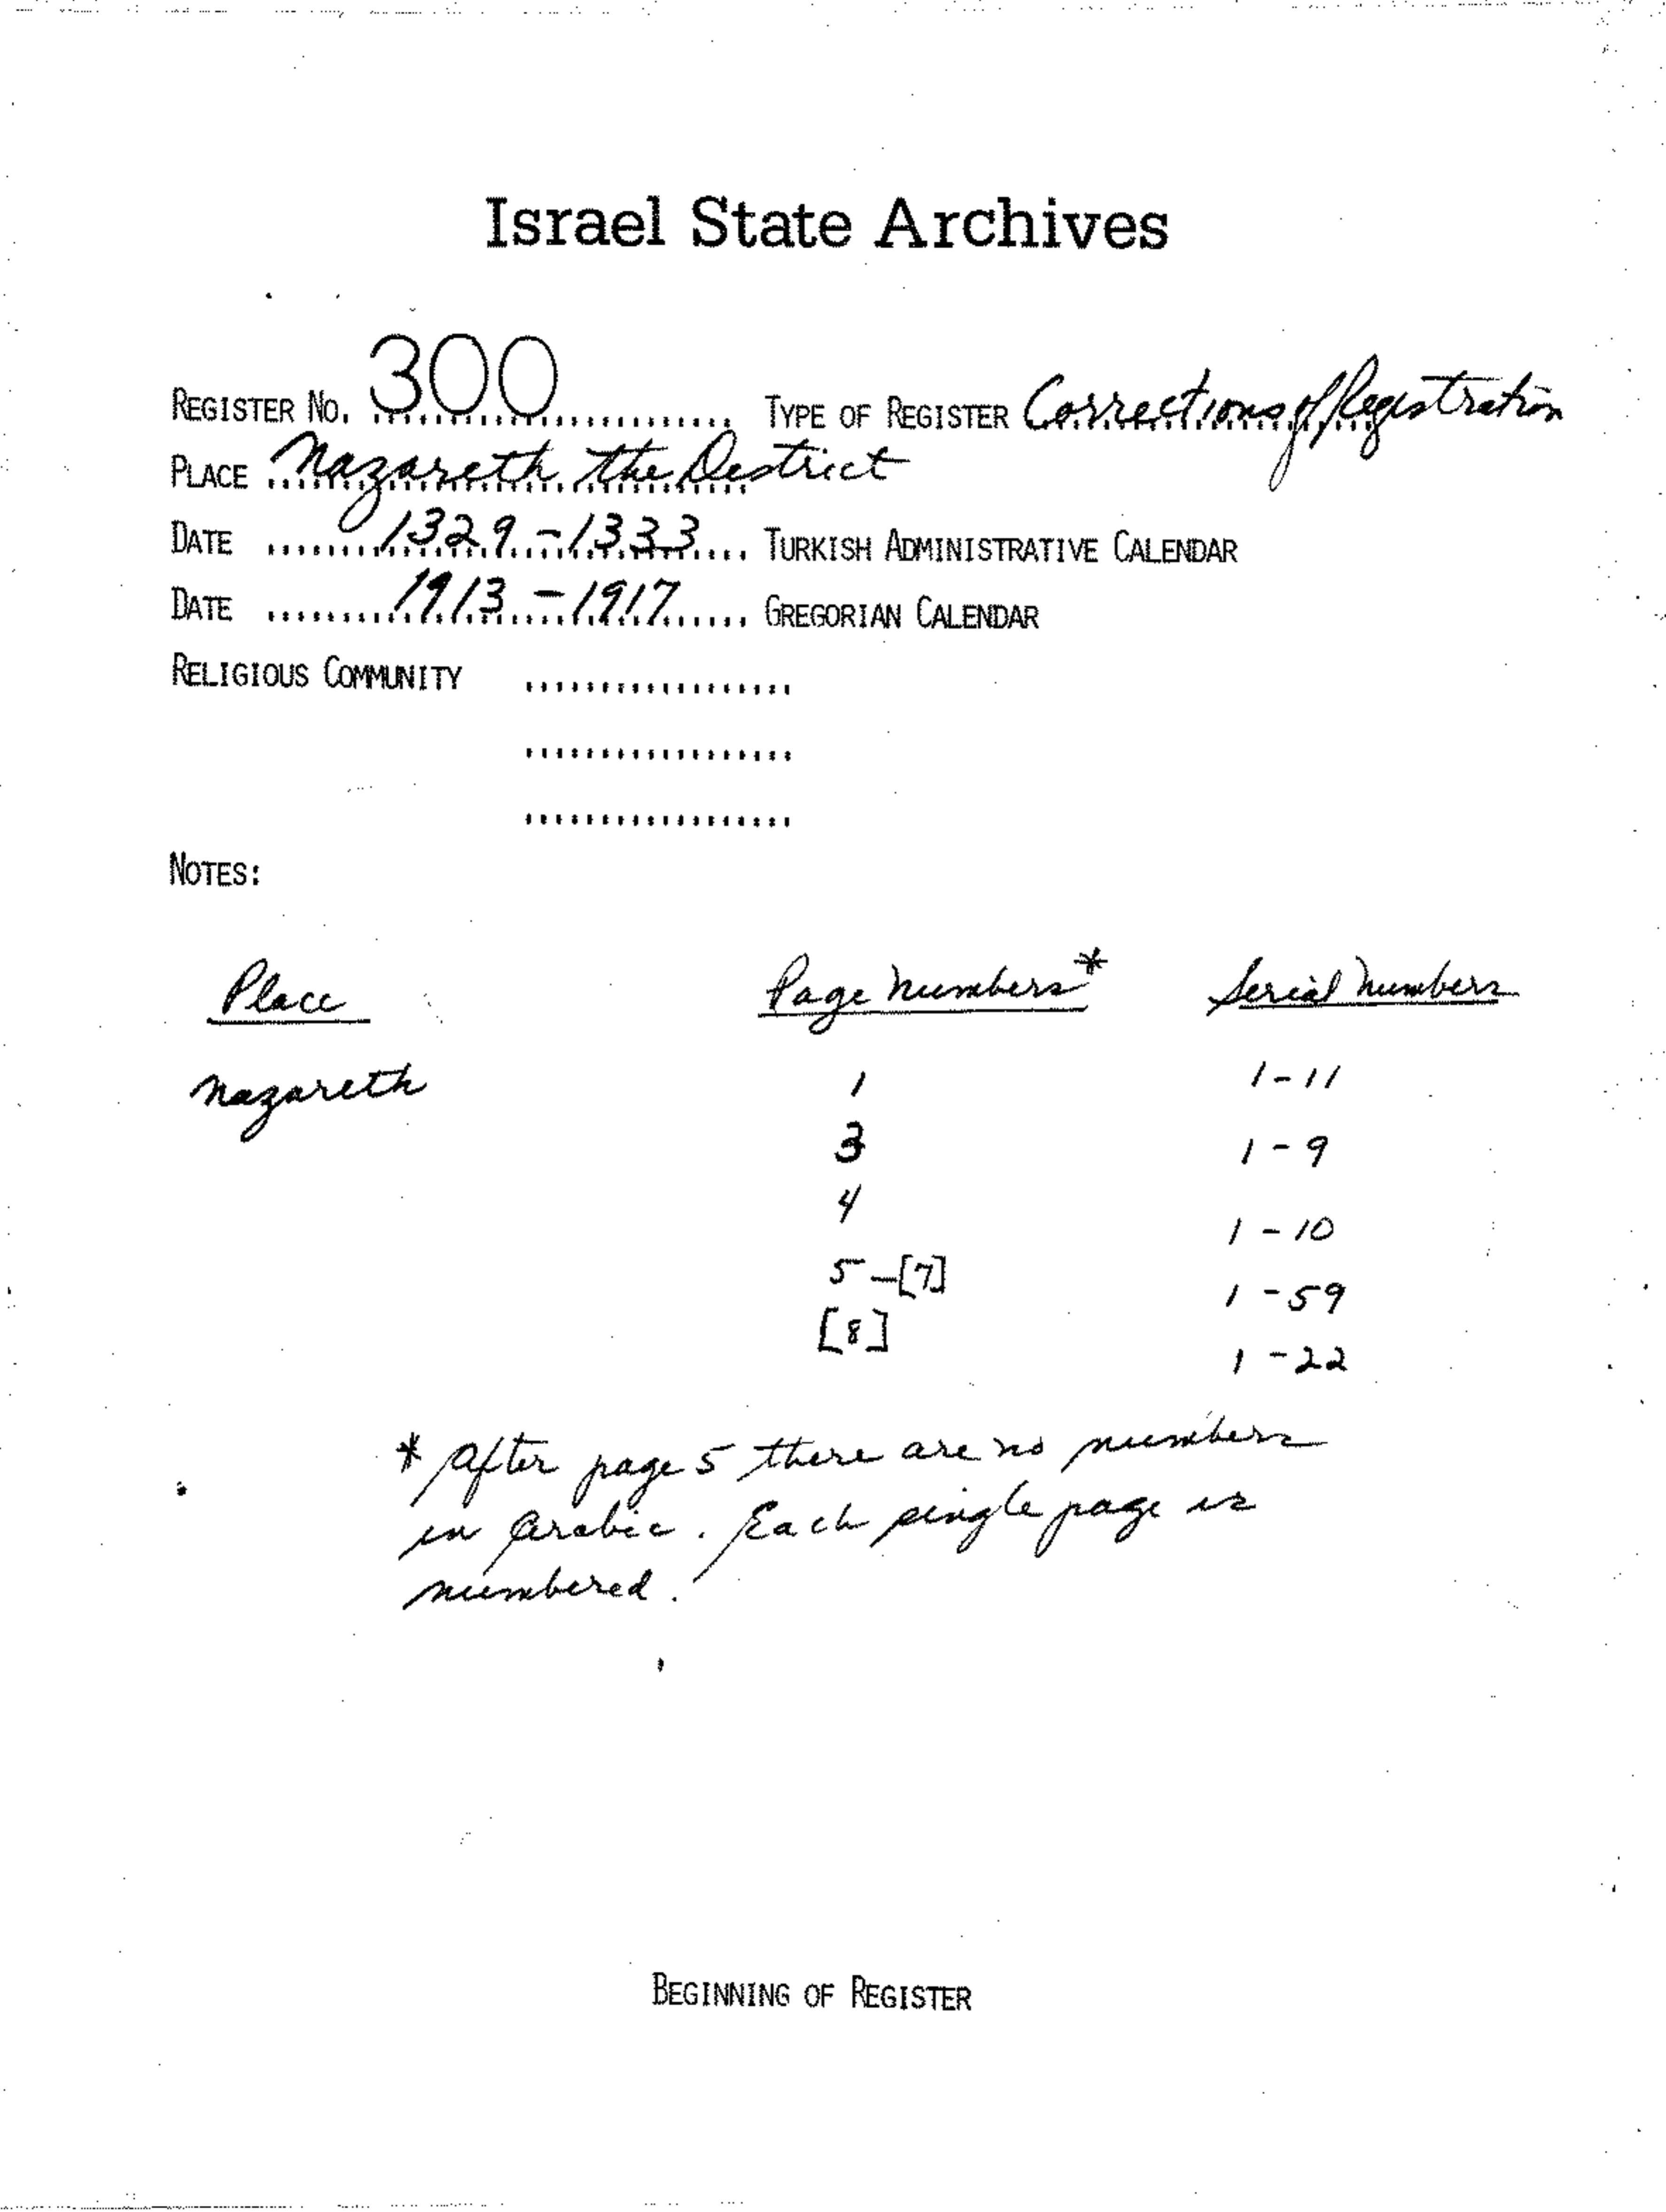 Israel State Archives
REGISTER NO. 300 TYPE OF REGISTER Corrections of Registration
PLACE Nazareth the District
DATE 1329-1333 TURKISH ADMINISTRATIVE CALENDAR
DATE 1913-1917 GREGORIAN CALENDAR
RELIGIOUS COMMUNITY
NOTES:
Place Page Numbers* Serial Numbers
Nazareth 1 1-11
3 1-9
4 1-10
5-[7] 1-59
[8] 1-22
* After page 5 there are no numbers
in Arabic. Each single page is
numbered.
BEGINNING OF REGISTER